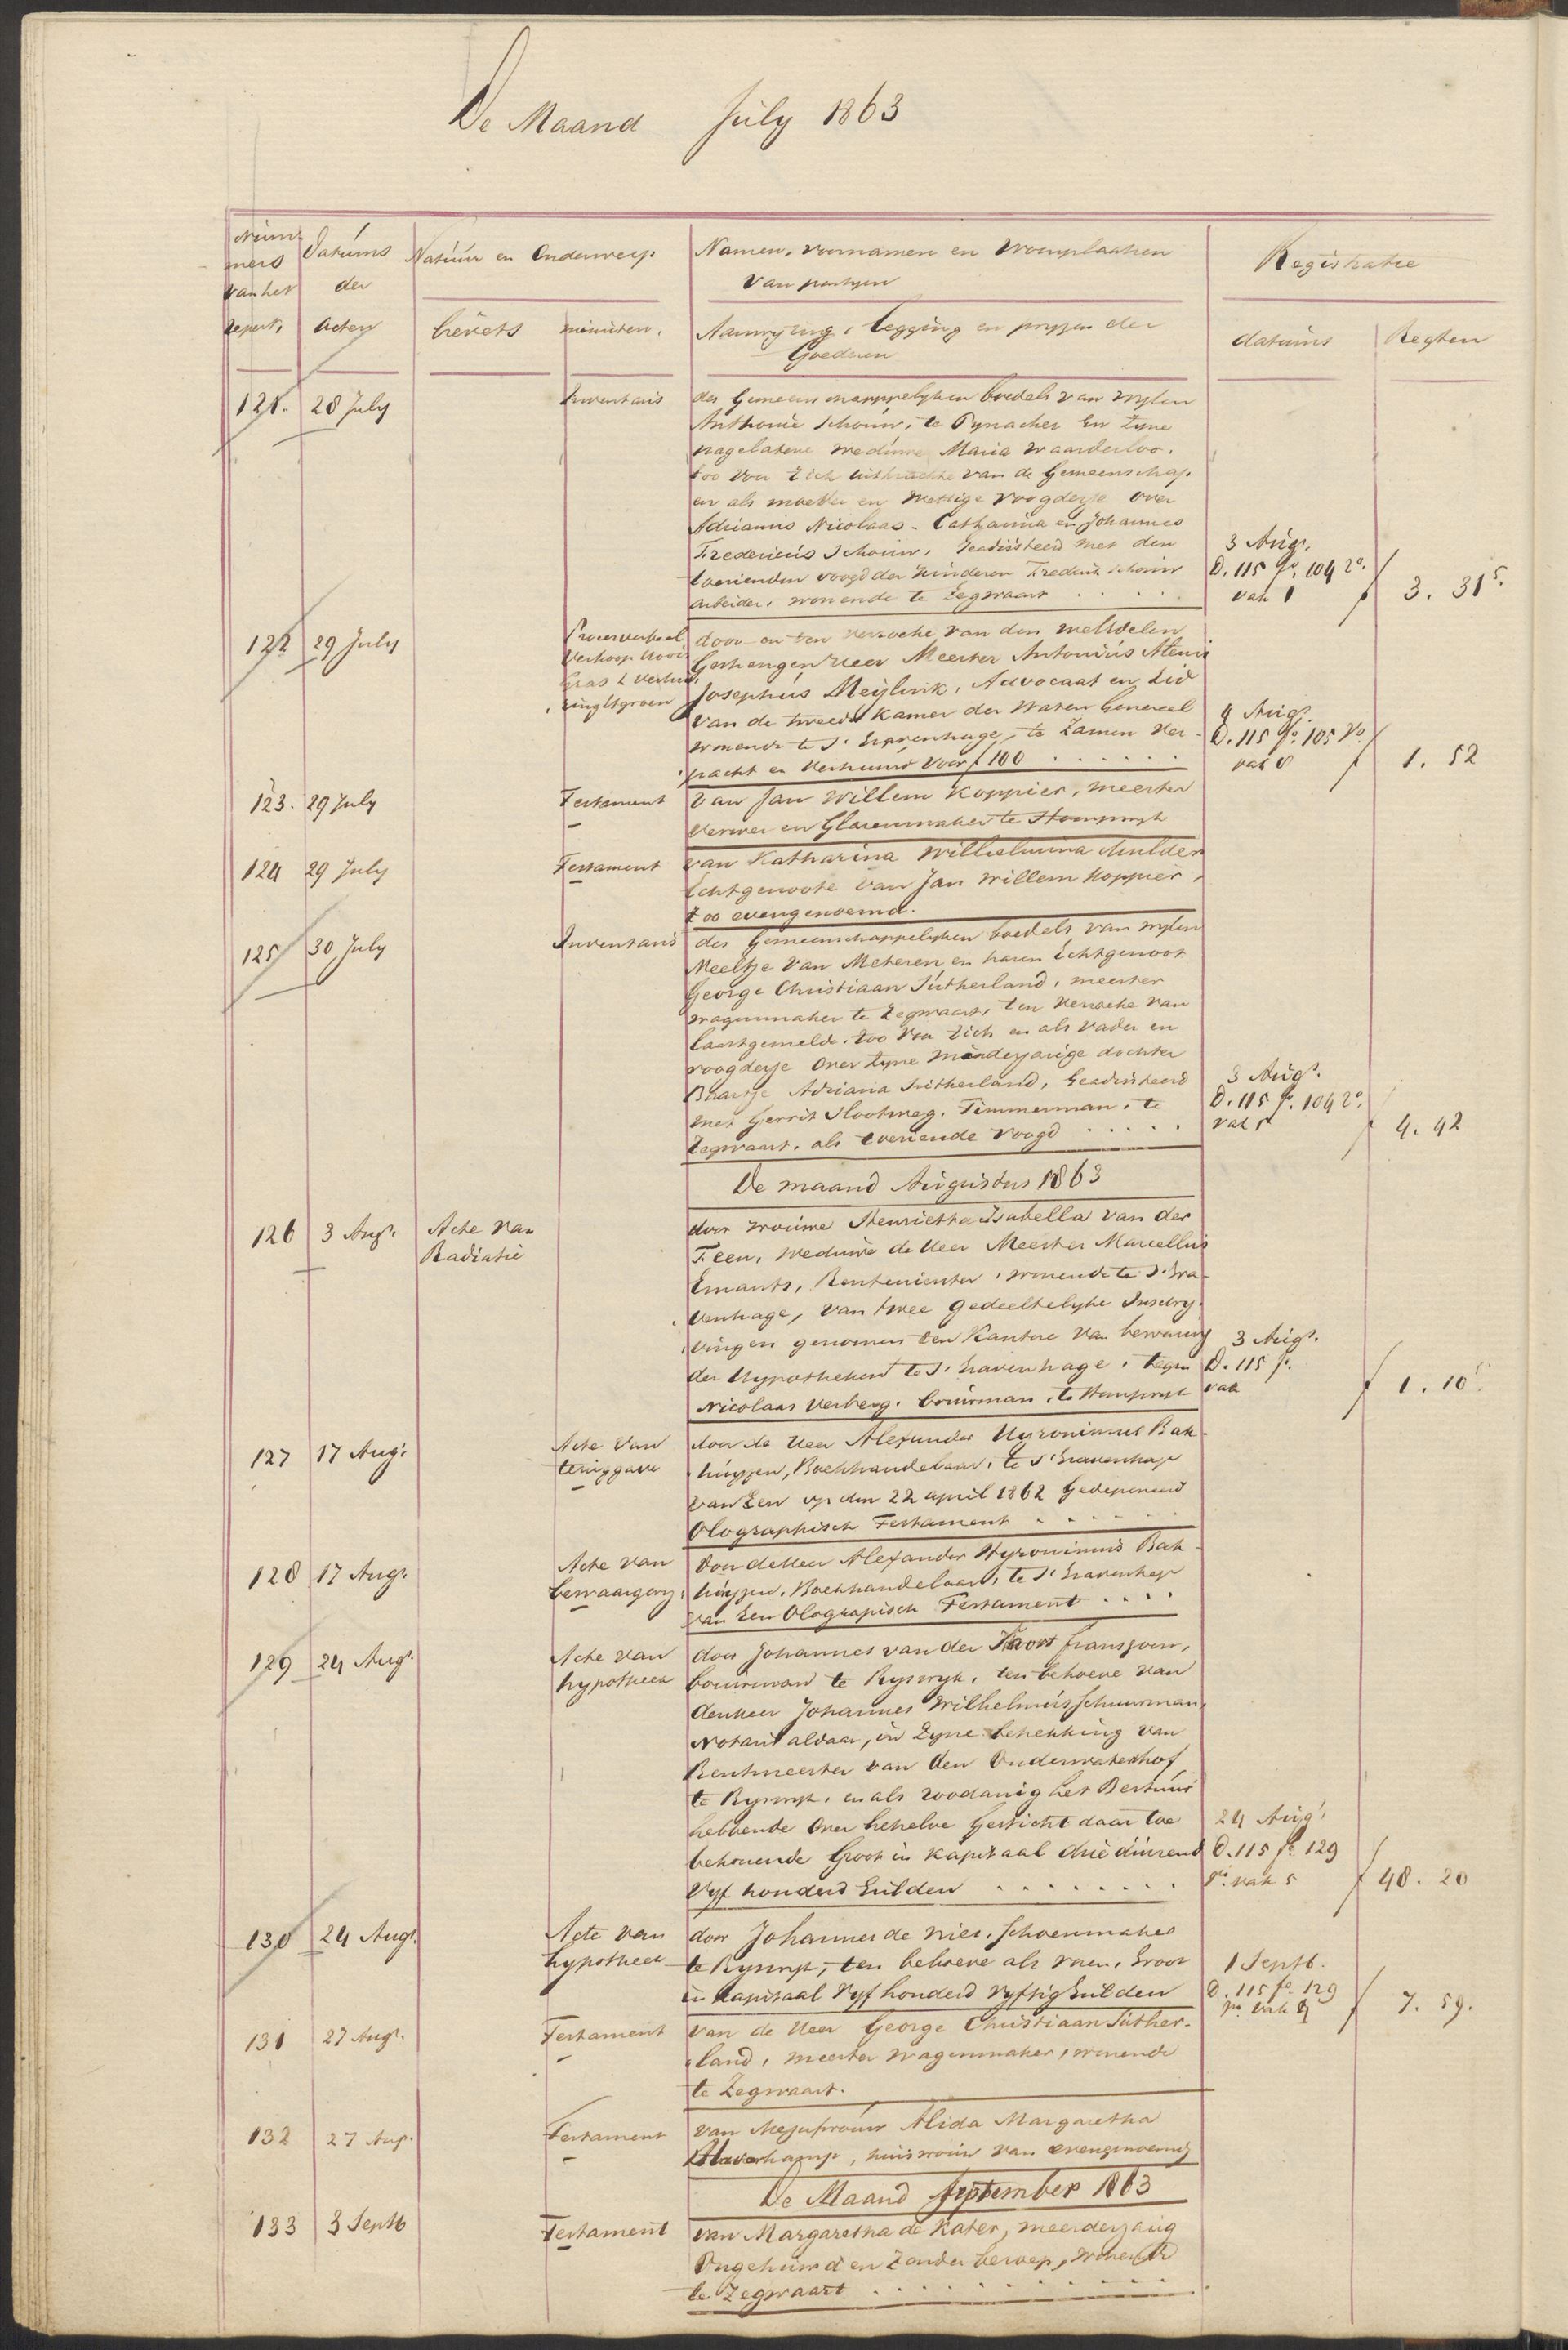 De Maand July 1863
Num-
mers
van het
repert.
Datums
der
Acten
Natuur en Onderwerp
brevets minuten.
Namen, voornamen en woonplaatsen
van partyen
Aanwyzing, legging en pryzen der
Goederen
Registratie
datums Regten
121. 28 July Inventaris des Gemeenschappelyken boedels van wylen
Anthonie Schouw, te Pynacker En Zyne
nagelatene weduwe Maria Waardenloo.
zoo voor Zich uit krachte van de Gemeenschap
en als moeder en Wettige Voogdesse over
Adrianus Nicolaas - Catharina en Johannes
Fredericus Schouw, Geadsisteerd met den
toezienden voogd der Kinderen Frederik Schouw
arbeider, wonende te Zegwaart
3 Augt.
D. 115 fo. 104 
vak 1
f 3. 31 5.
122 29 July Procesverbaal
Verkoop Hooi
Gras & Verhu
ring Etgroen
door en ten verzoeke van den weledelen
Gestrengen Heer Meester Antonius Aleni
Josephus Meylink, Advocaat en Lid
van de tweede Kamer der Staten Generaal
wonende te s' Gravenhage, te Zamen Ver-
pacht en Verhuurd voor f 100
4 Augt.
D. 115 fo. 105 Vo
vak 8
f 1. 52
123. 29 July Testament van Jan Willem Koppier, meester
Verwer en Glazenmaker te Stompwyk
124 29 July Testament van Katharina Wilhelmina Mulder
Echtgenoote van Jan Willem Koppier,
zoo evengenoemd.
125 30 July Inventaris des Gemeenschappelyken boedels van wylen
Neeltje van Meteren en haren Echtgenoot
George Christiaan Sutherland, meester
wagenmaker te Zegwaart, ten verzoeke van
laastgemelde, zoo voor zich en als vader en
voogdesse over zyne minderjarige dochter
Baartje Adriana Sutherland, Geadsisteerd
met Gerrit Slootweg, Timmerman, te
Zegwaart, als toeziende voogd
3 Augt.
D. 115 fo. 104 
vak 5
f 4. 42
De maand Augustus 1863
126 3 Augt. Acte van
Radiatie
door Vrouwe Henrietta Isabella van der
Feen, weduwe de Heer Meester Marcellus
Emants, Rentenierster, wonende te s' Gra-
venhage, van twee gedeeltelyke Inschry-
vingen genomen ten Kantore van bewaring
der Hypotheken te s' Gravenhage, tegen
Nicolaas Verberg, bouwman, te Stompwyk
3 Augt.
D. 115 fo.
vak
f 1. 10 5.
127 17 Augt. Acte van
teruggave
door de Heer Alexander Hyronimus Bak-
huyzen, Boekhandelaar, te s' Gravenhage
van Een op den 22 april 1862 Gedeponeerd
Olographisch Testament
128 17 Augt. Acte van
bewaargeving
door de Heer Alexander Hyronimus Bak-
huyzen, Boekhandelaar, te s' Gravenhage
van Een Olograpisch Testament
129 24 Augt. Acte van
hypotheek
door Johannes van der Voort Franszoon,
bouwman te Ryswyk, ten behoeve van
den Heer Johannes Wilhelmus Schuurman,
Notaris aldaar, in Zyne betrekking van
Rentmeester van den Onderwaterhof
te Ryswyk, en als zoodanig het Bestuur
hebbende over hetzelve Gesticht daar toe
behoorende Groot in Kapitaal drie duizend
Vyf honderd Gulden
24 Augt.
D. 115 fo. 129
vak 5
f 48. 20
130 24 Augt. Acte van
hypotheek
door Johannes de Vries, Schoenmaker
te Ryswyk, ten behoeve als voren, Groot
in Kapitaal Vyf honderd Vyftig Gulden
1 Septb.
D. 115 fo. 129
f 7. 59.
131 27 Augt. Testament van de Heer George Christiaan Suther-
land, meester wagenmaker, wonende
te Zegwaart.
132 27 Aug. Testament van Mejufvrouw Alida Margaretha
Haverkamp, huisvrouw van evengenoemd
De Maand September 1863
133 3 Septb Testament van Margaretha de Kater, meerderjarig
Ongehuwd en Zonder beroep, wonende
te Zegwaart